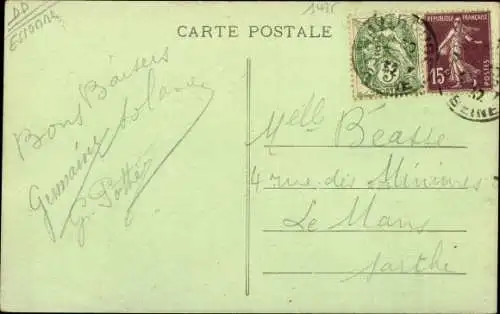 DD
ESSONNE
1495
CARTE POSTALE
REPUBLIQUE FRANÇAISE
15c
POSTES
5
SEINE
Bons Baisers
Germaine
G. Pottier
Melle Béasse
4 rue des Minimes
Le Mans
Sarthe